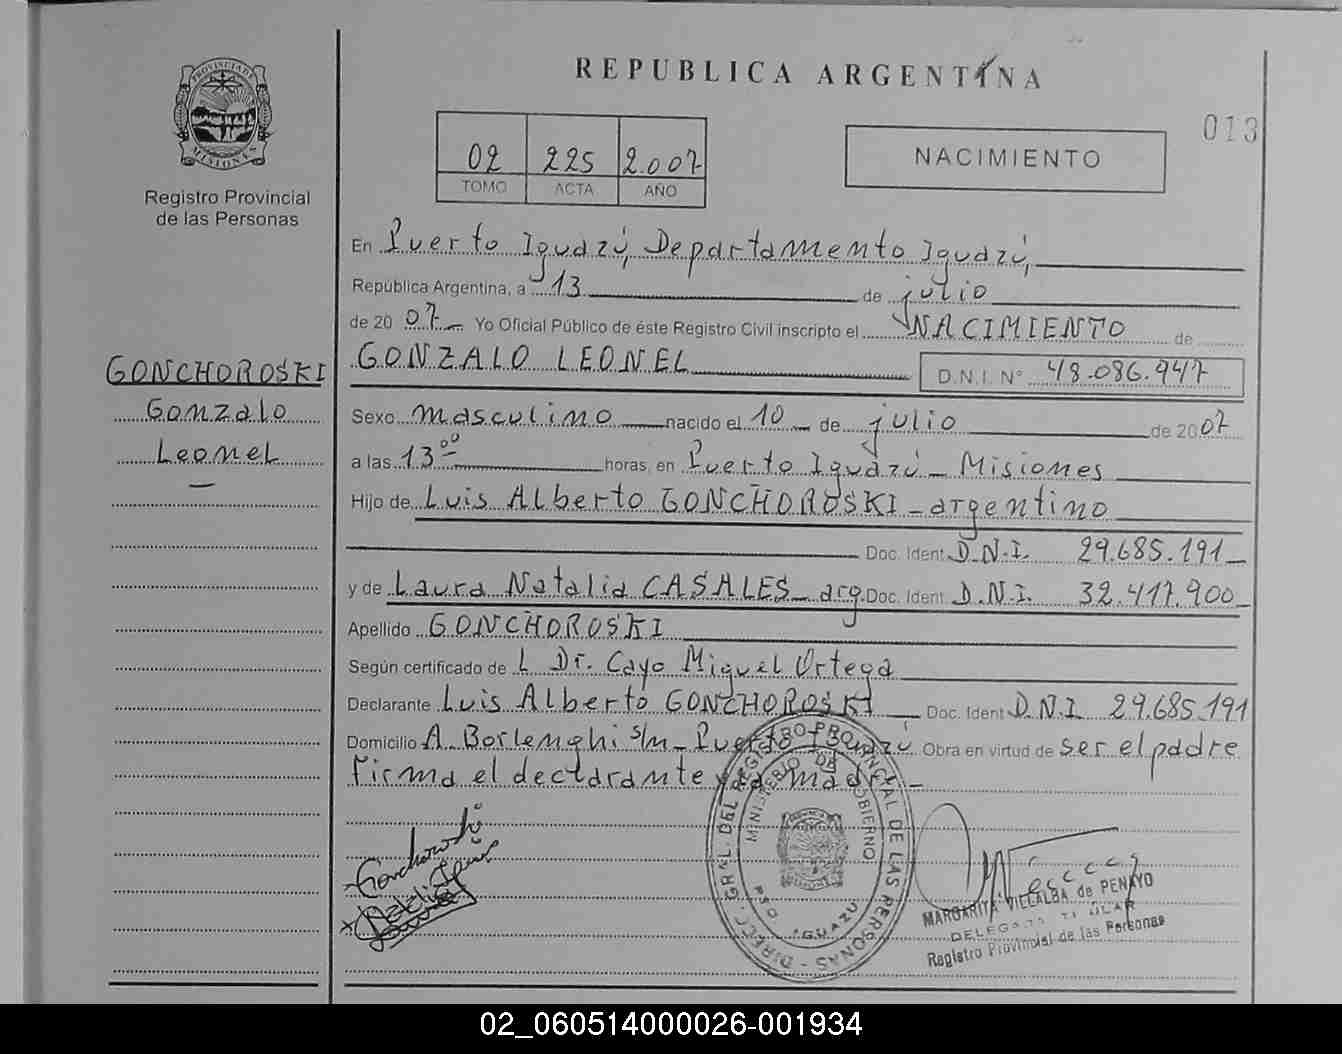 PROVINCIA DE
MISIONES
Registro Provincial
de las Personas
GONCHOROSKI
Gonzalo
Leonel
—
REPUBLICA ARGENTINA
013
02 225 2.007
TOMO ACTA AÑO
NACIMIENTO
En Puerto Iguazú, Departamento Iguazú,
República Argentina, a 13 de julio
de 20 07 Yo Oficial Público de éste Registro Civil inscripto el NACIMIENTO de
GONZALO LEONEL D.N.I. N° 48.086.947
Sexo masculino nacido el 10 de julio de 20 07
a las 13 00 horas, en Puerto Iguazú - Misiones
Hijo de Luis Alberto GONCHOROSKI - argentino
Doc. Ident D.N.I. 29.685.191
y de Laura Natalia CASALES - arg. Doc. Ident D.N.I. 32.417.900
Apellido GONCHOROSKI
Según certificado de L Dr. Cayo Miguel Ortega
Declarante Luis Alberto GONCHOROSKI Doc. Ident D.N.I 29.685.191
Domicilio A. Borlenghi s/n - Puerto Iguazú Obra en virtud de ser el padre
Firma el declarante y la madre -
DIRECC. GRAL. DEL REGISTRO PROVINCIAL DE LAS PERSONAS
MINISTERIO DE GOBIERNO
PTO IGUAZU
Gonchoroski
MARGARITA VILLALBA de PENAYO
DELEGADA TITULAR
Registro Provincial de las Personas
02_060514000026-001934